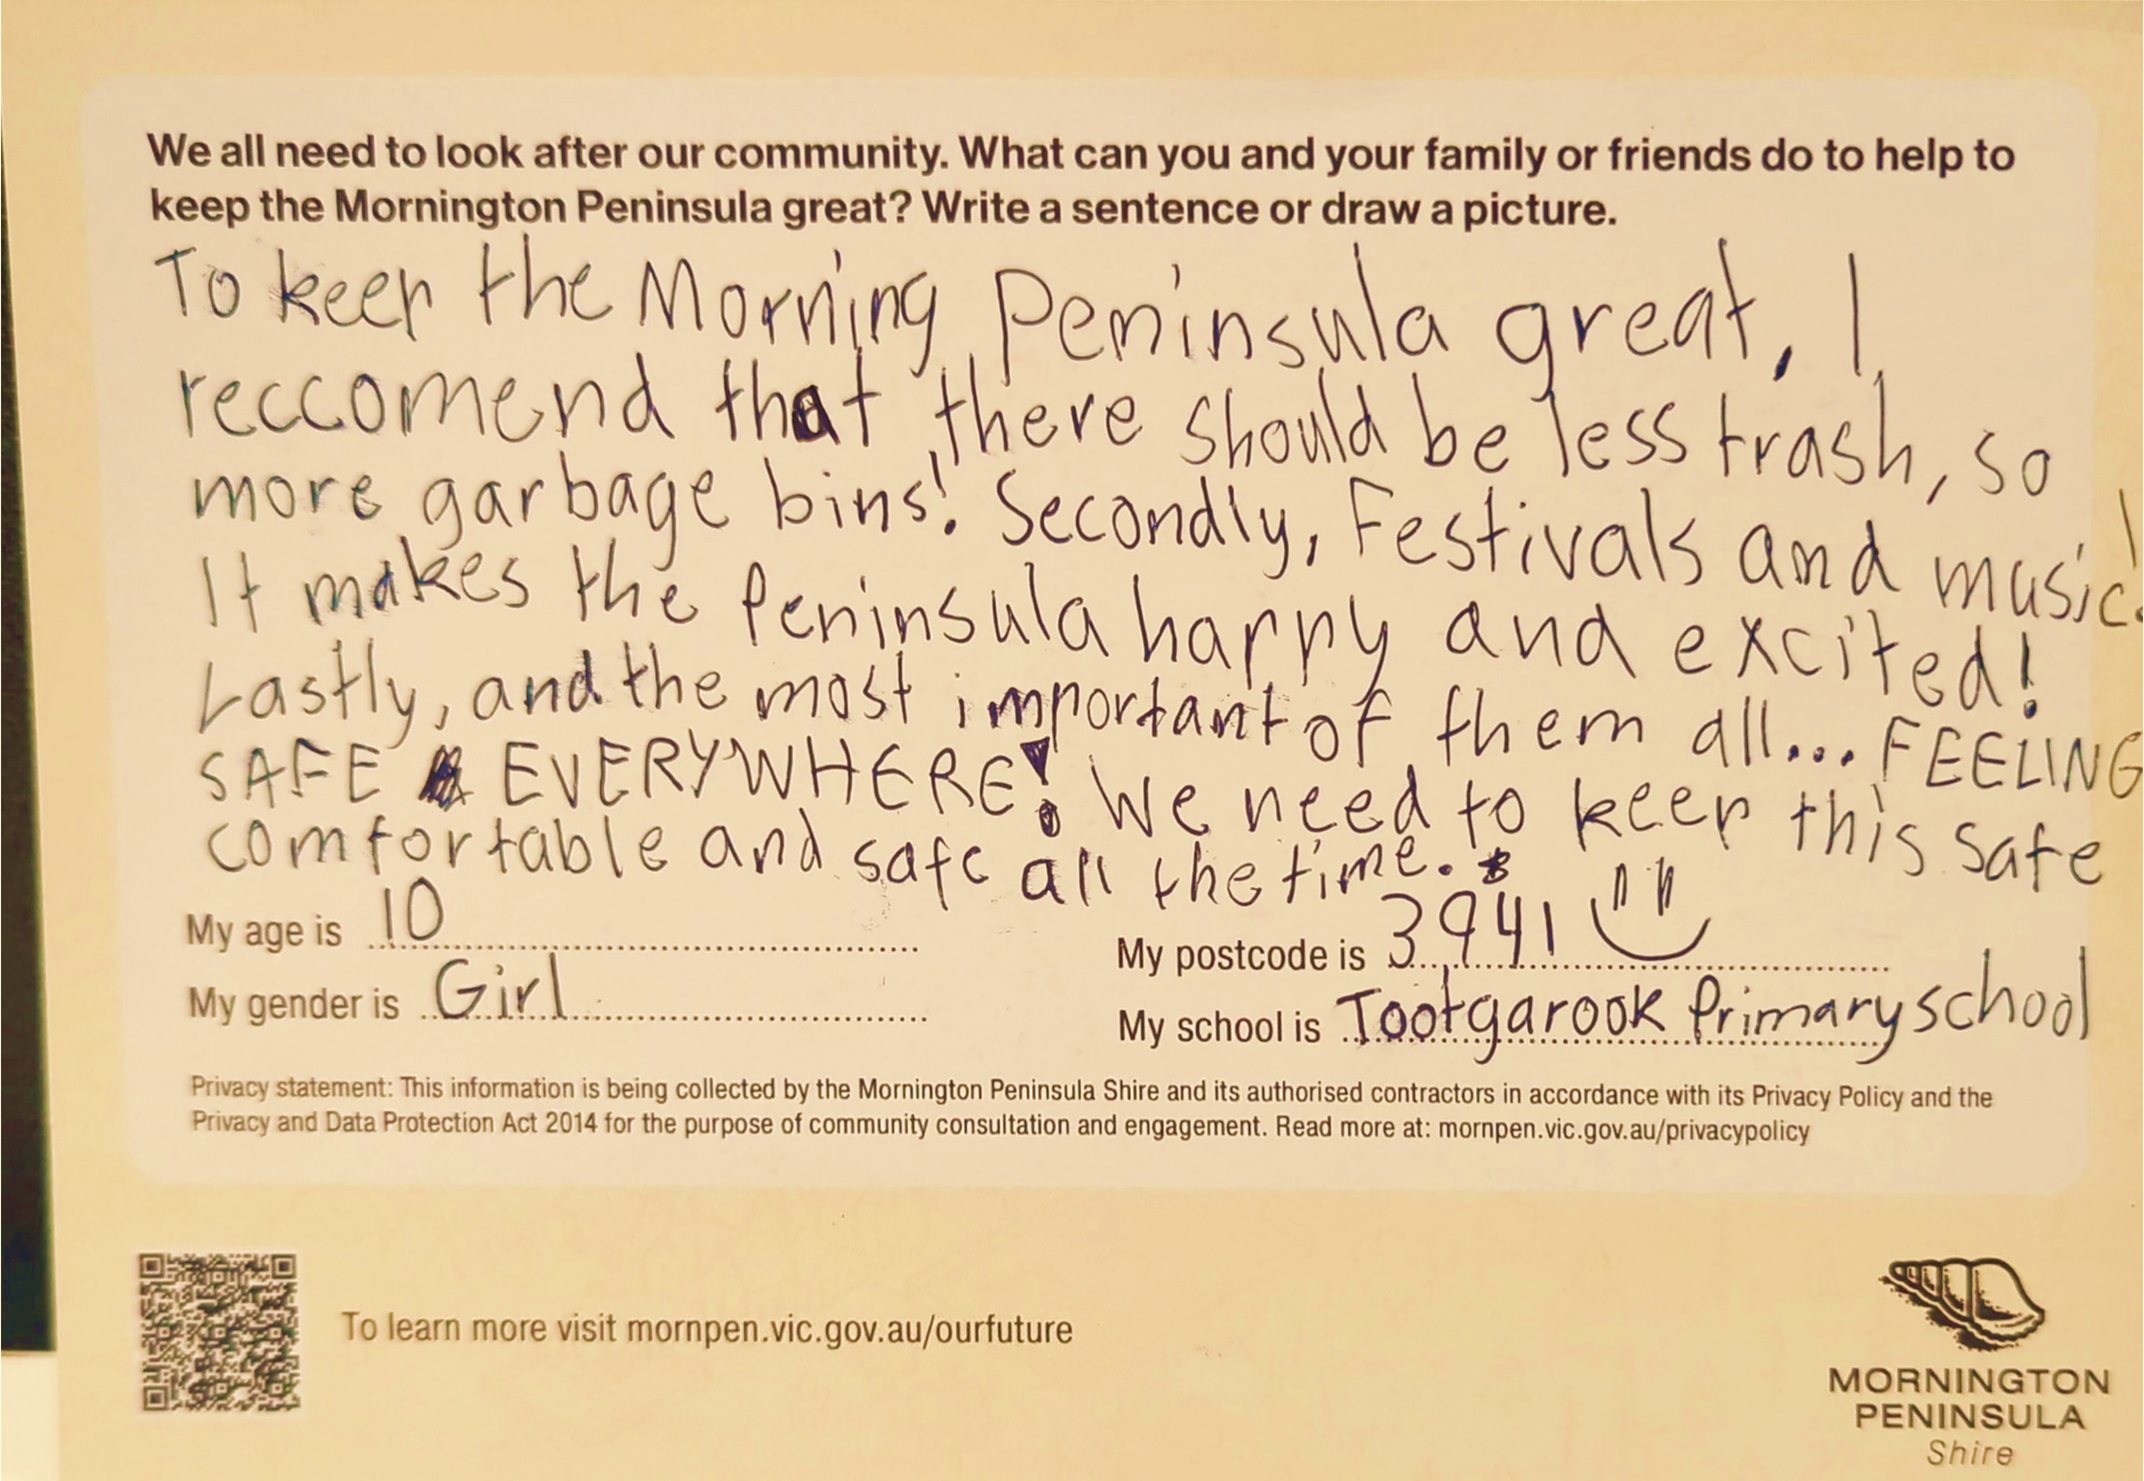 We all need to look after our community. What can you and your family or friends do to help to
keep the Mornington Peninsula great? Write a sentence or draw a picture.
To keep the Morning Peninsula great, I
reccomend that there should be less trash, so
more garbage bins! Secondly, Festivals and music!
It makes the Peninsula happy and excited!
Lastly, and the most important of them all... FEELING
SAFE EVERYWHERE! We need to keep this safe
comfortable and safe all the time.
My age is 10
My postcode is 3941
My gender is Girl
My school is Tootgarook Primary school
Privacy statement: This information is being collected by the Mornington Peninsula Shire and its authorised contractors in accordance with its Privacy Policy and the
Privacy and Data Protection Act 2014 for the purpose of community consultation and engagement. Read more at: mornpen.vic.gov.au/privacypolicy
To learn more visit mornpen.vic.gov.au/ourfuture
MORNINGTON
PENINSULA
Shire